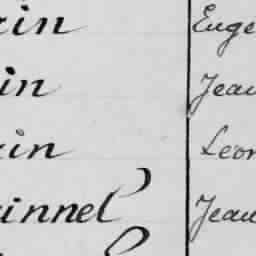 rin Euge
in Jean
in Leon
innel Jean